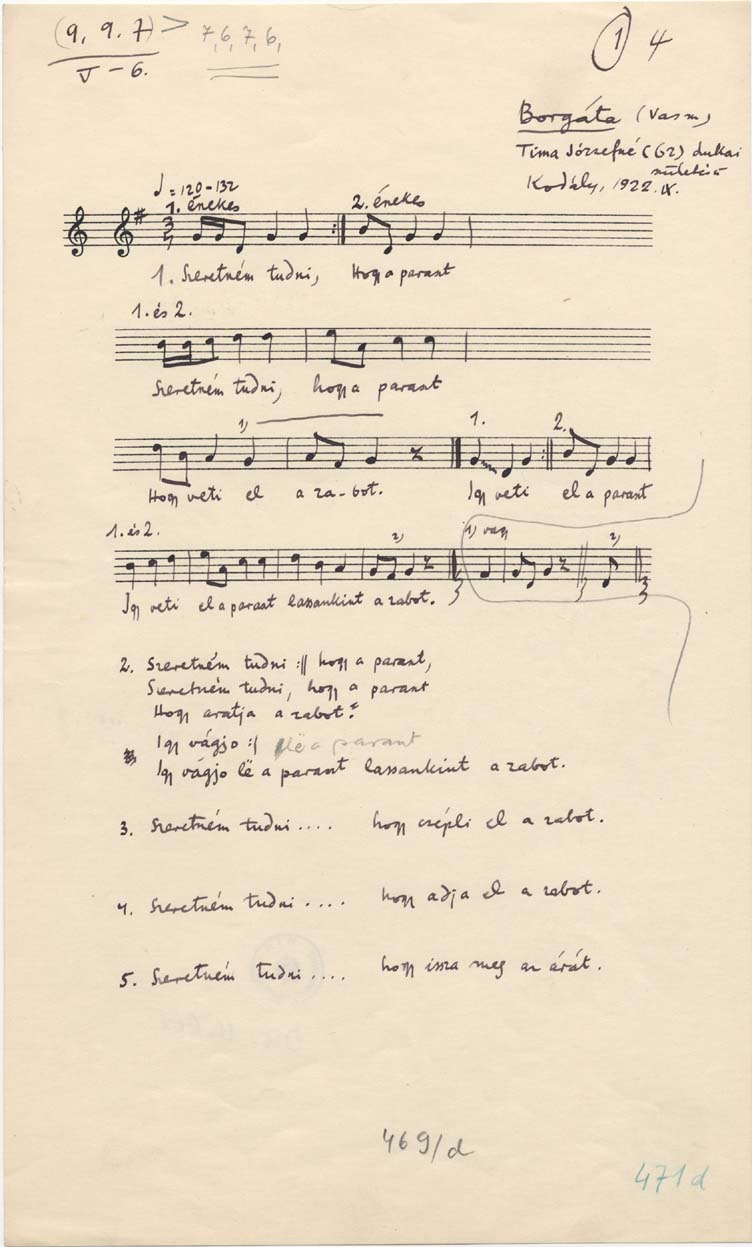 (9, 9. 7) > 7, 6, 7, 6,
V – 6.
1 4
Borgáta (Vasm)
Tima Józsefné (62) dukai
születésű
Kodály, 1922. IX.
♩ = 120-132
1. énekes 2. énekes
1. Szeretném tudni, Hogy a paraszt
1. és 2.
Szeretném tudni, hogy a paraszt
1) 1. 2.
Hogy veti el a za-bot. Igy veti el a paraszt
1. és 2. 2) 1) vagy 2)
Igy veti el a paraszt lassankint a zabot.
2. Szeretném tudni :|| hogy a paraszt,
Szeretném tudni, hogy a paraszt
Hogy aratja a zabot?
Igy vágjo :| lë a paraszt
Igy vágjo lë a paraszt lassankint a zabot.
3. Szeretném tudni.... hogy csépli el a zabot.
4. Szeretném tudni.... hogy adja el a zabot.
5. Szeretném tudni.... hogy issza meg az árát.
469/d
471d